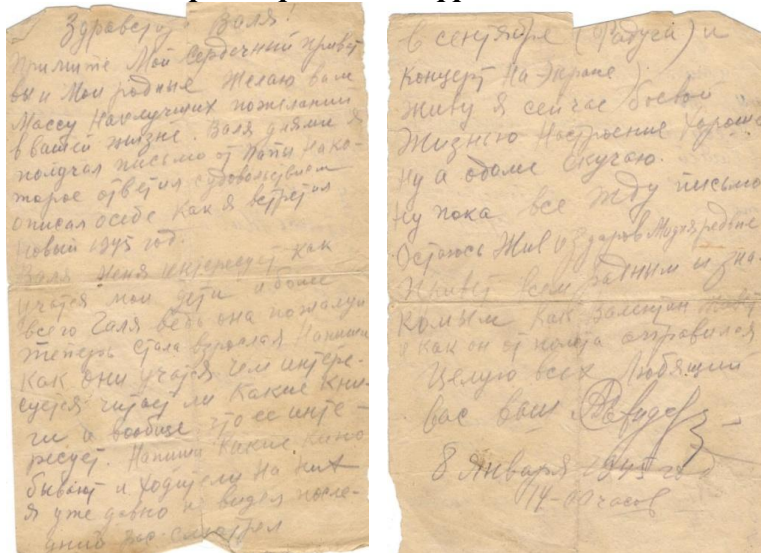 Здравствуй Валя!
Примите Мой Сердечный привет
вы и Мои родные Желаю вам
Массу Наилучших пожелании
в вашей жизне. Валя днями я
получал письмо от Папы На ко-
торое ответил судовольствием
описал осебе Как я встретил
новый 1945 год.
Валя Меня интересует Как
учатся мои дети а более
всего Галя ведь она пожалуи
теперь стала взрослая Напиши
Как они учатся чем интере-
суется читает ли Какие кни-
ги и вообще что ее инте-
ресует. Напиши Какие Кино
бывают и ходители На них
я уже давно не видел после-
дний раз смотрел
в сентябре (Радуга) и
Концерт На Экране)
Живу я сейчас боевой
Жизнью Настроение Хорошо
Ну а о доме скучаю.
Ну пока все Жду письма
Остаюсь Жив и здоров Мои родные
Привет всем родным и зна-
комым Как Валентин живет
и как он от полета
Целую всех Любящий
вас ваш
8 Января 1945 год
14-00 часов